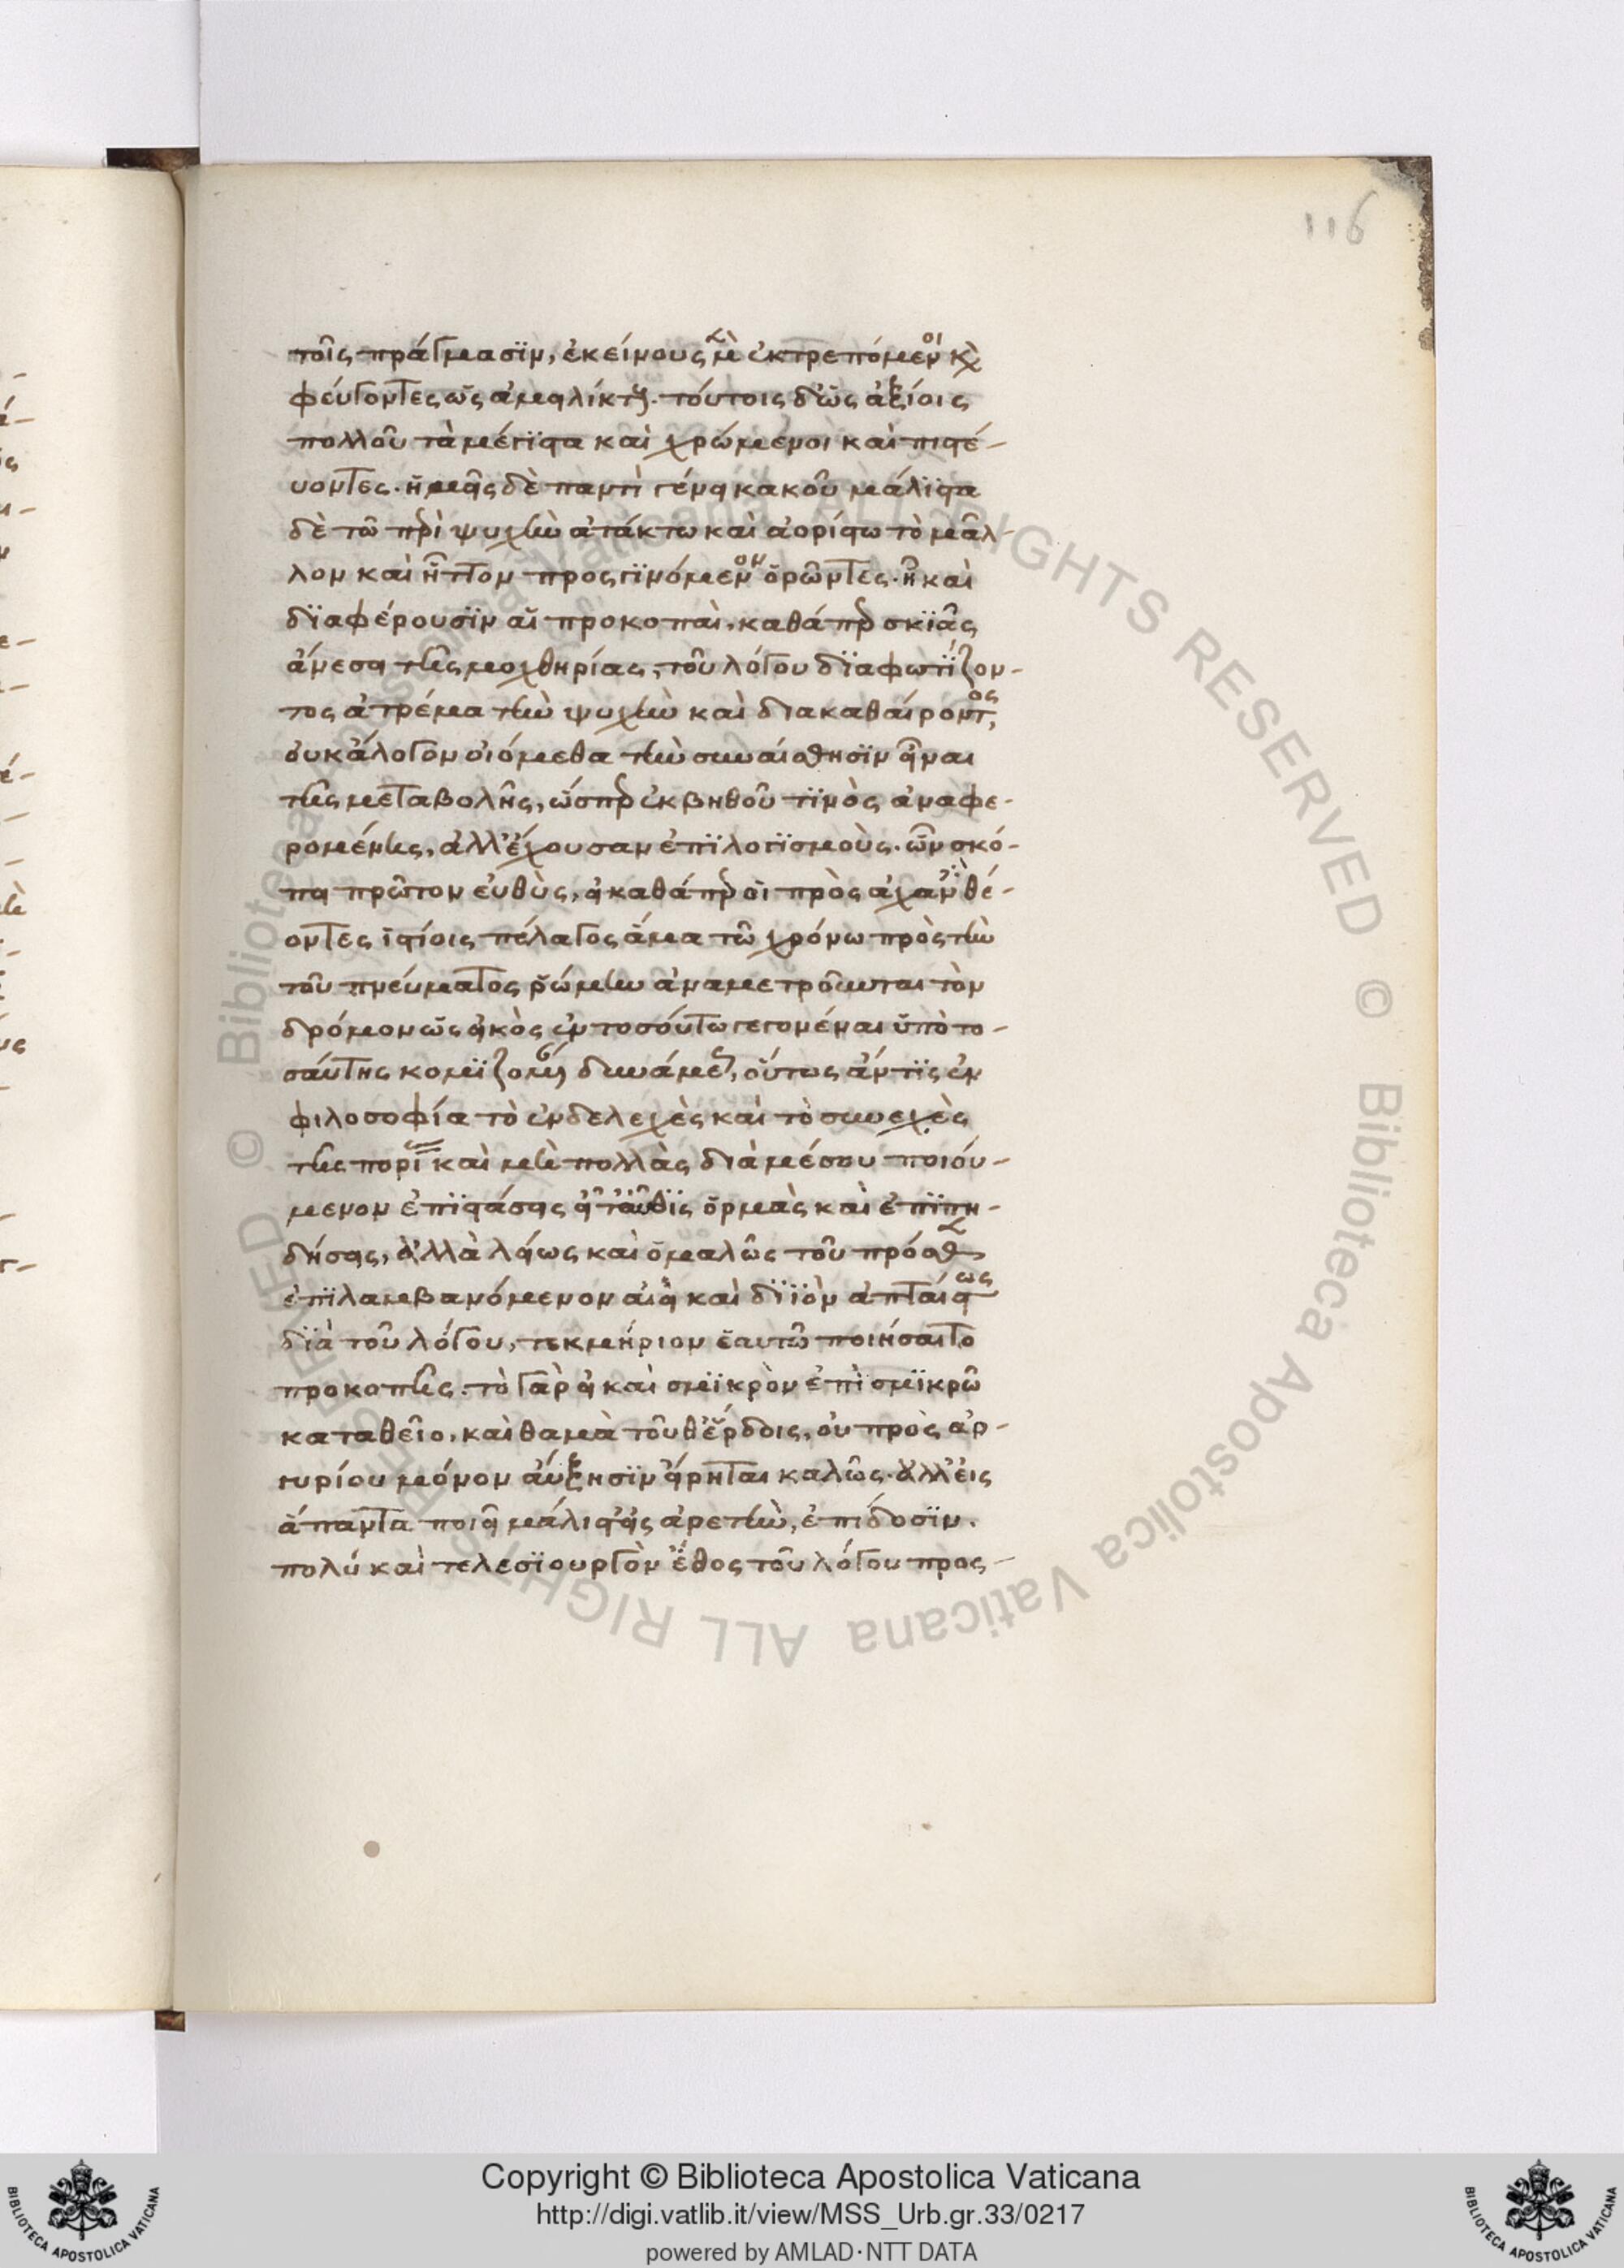 116
τοῖς πράγμασϊν, ἐκείνους μὲν ἐκτρεπόμενοι καὶ
φεύγοντες ὡς ἀμειλίκτους. τούτοις δ' ὡς ἀξίοις
πολλοῦ τὰ μέγιστα καὶ χρώμενοι καὶ πιστέ-
υοντες. ἡμεῖς δὲ παντὶ γένει κακοῦ μάλϊστα
δὲ τῶ περὶ ψυχὴν ἀτάκτω καὶ ἀορίστω τὸ μᾶλ-
λον καὶ ἧττον προσγϊνόμενον ὁρῶντες. ἧ καὶ
δϊαφέρουσϊν αἱ προκοπαὶ, καθάπερ σκϊᾶς
ἀνέσει τῆς μοχθηρίας, τοῦ λόγου δϊαφωτϊζον-
τος ἀτρέμα τὴν ψυχὴν καὶ διακαθαίροντος,
οὐκ ἄλογον οἰόμεθα τὴν συναίσθησϊν εἶναι
τῆς μεταβολῆς, ὥσπερ ἐκ βηθοῦ τϊνὸς ἀναφε-
ρομένης, ἀλλ' ἔχουσαν ἐπϊλογϊσμοὺς. ὧν σκό-
πει πρῶτον εὐθὺς, εἰ καθάπερ οἱ πρὸς ἀχανὲς θέ-
οντες ἱστίοις πέλαγος ἅμα τῶ χρόνω πρὸς τὴν
τοῦ πνεύματος ῥώμην ἀναμετροῦνται τὸν
δρόμον ὡς εἰκὸς ἐν τοσούτω γεγονέναι ὑπὸ το-
σαύτης κομϊζομένους δυνάμεως, οὕτως ἄν τϊς ἐν
φιλοσοφία τὸ ἐνδελεχὲς καὶ τὸ συνεχὲς
τῆς πορείας καὶ μὴ πολλὰς διὰ μέσου ποιού-
μενον ἐπϊστάσεις εἶτ' αὖθϊς ὁρμὰς καὶ ἐπϊπη-
δήσεις, ἀλλὰ λείως καὶ ὁμαλῶς τοῦ πρόσθεν
ἐπϊλαμβανόμενον αἰεὶ καὶ δϊϊὸν ἀπταίστως
δϊὰ τοῦ λόγου, τεκμήριον ἑαυτῶ ποιήσαιτο
προκοπῆς. τὸ γὰρ εἰ καὶ σμϊκρὸν ἐπὶ σμϊκρῶ
καταθεῖο, καὶ θαμὰ τοῦθ' ἔρδοις, οὐ πρὸς ἀρ-
γυρίου μόνον αὔξησϊν εἴρηται καλῶς. ἀλλ' εἰς
ἅπαντα ποιεῖ μάλιστ' εἰς ἀρετὴν, ἐπίδοσϊν.
πολύ καὶ τελεσϊουργὸν ἔθος τοῦ λόγου προς-
© Biblioteca Apostolica Vaticana ALL RIGHTS RESERVED © Biblioteca Apostolica Vaticana ALL RIGHTS RESERVED
BIBLIOTECA APOSTOLICA VATICANA
Copyright © Biblioteca Apostolica Vaticana
http://digi.vatlib.it/view/MSS_Urb.gr.33/0217
powered by AMLAD·NTT DATA
BIBLIOTECA APOSTOLICA VATICANA